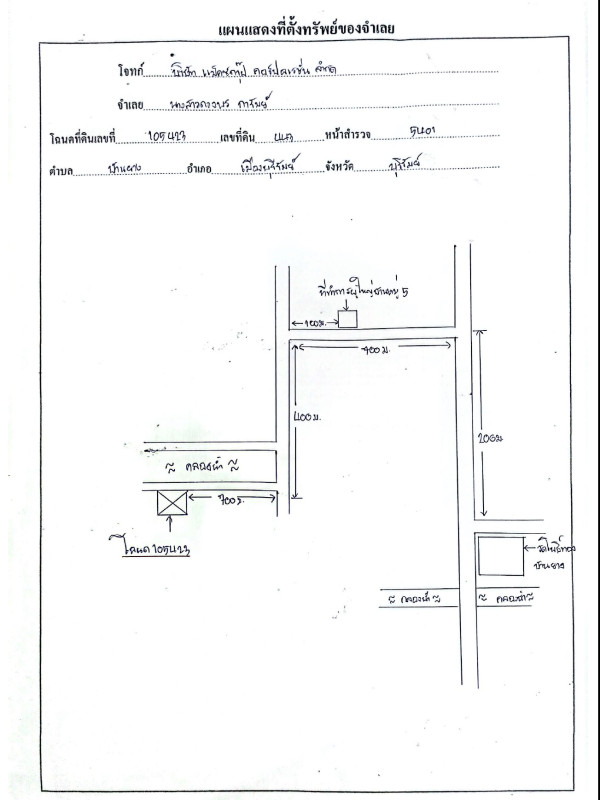 แผนแสดงที่ตั้งทรัพย์ของจำเลย
โจทก์ บริษัท แม็คซคาปุ๊ คอร์ปอเรชั่น จำกัด
จำเลย นางสาว การัมย์
โฉนดที่ดินเลขที่ 105423 เลขที่ดิน หน้าสำรวจ 5401
ตำบล บ้านยาง อำเภอ เมืองบุรีรัมย์ จังหวัด บุรีรัมย์
ที่ทำการผู้ใหญ่บ้านหมู่ 5
100ม.
400 ม.
400ม.
200ม
≈ คลองน้ำ ≈
700 ม.
โฉนด 105423
วัดโพธิ์ทอง
บ้านยาง
≈ คลองน้ำ ≈ ≈ คลองน้ำ ≈